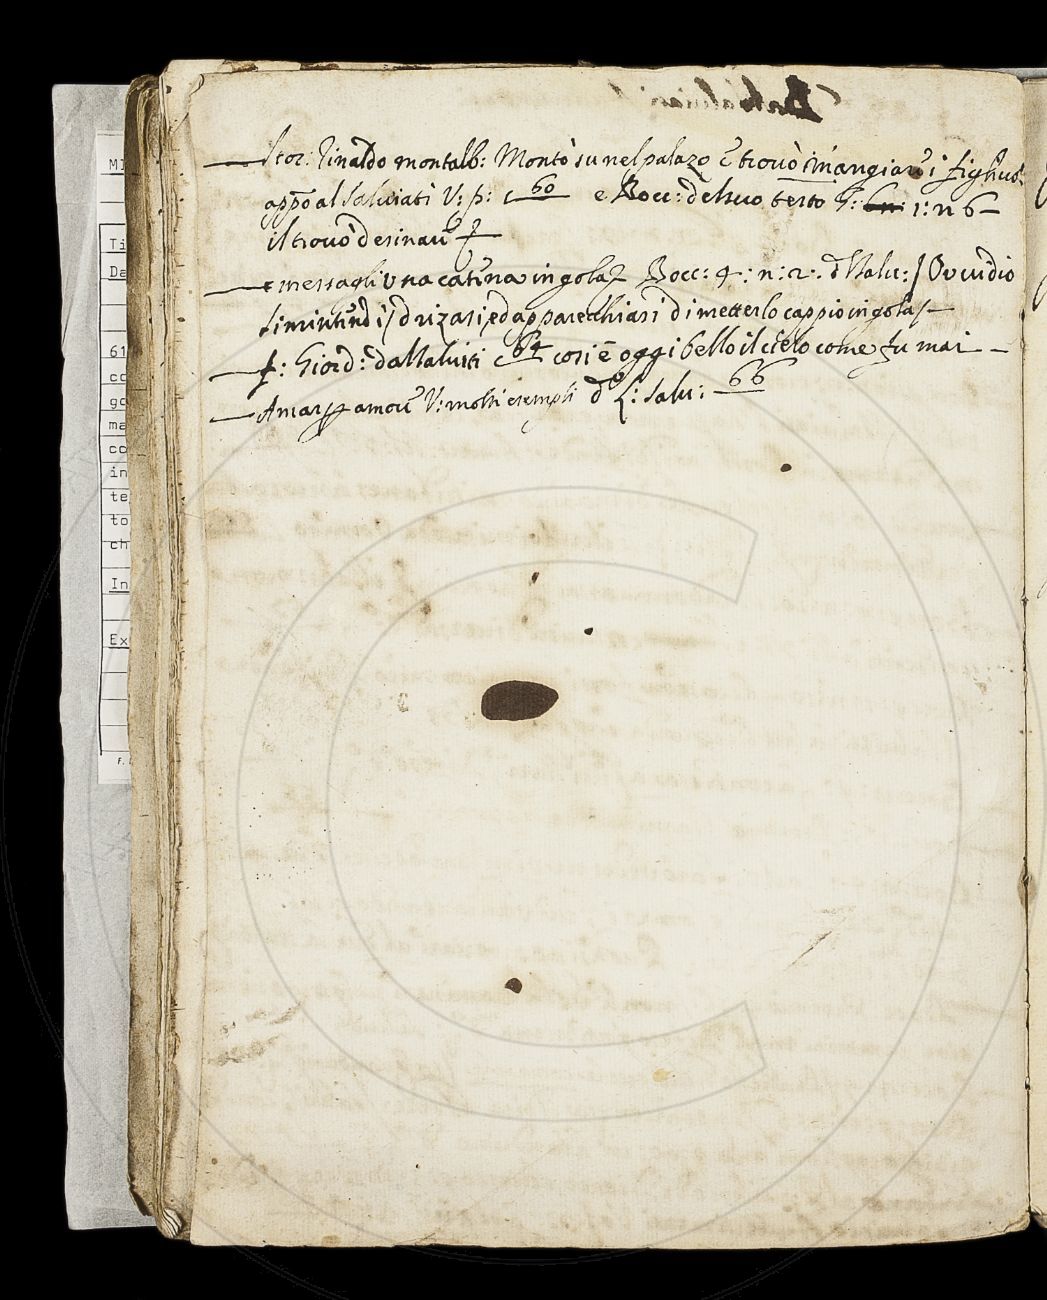 Stor: Rinaldo montalb: Montò su nel palazo e trovò in mangiare i figliuo:
appo al Salviati V: p: c 60 e Bocc: del suo testo 1: n 6
il trovò desinare
e messagli una catena in gola Bocc: 4: n: 2. d Salv: / Ovvidio
drizasi, ed apparecchiasi di mettersi lo cappio in gola
f: Giord: da Salviati c 64 cosi è oggi bello il cielo come fu mai
Amar p amore V: molti esempli d L: Salv: 66
MI
Ti
Da
61
cc
ma
cc
in
te
to
ch
In
Ex